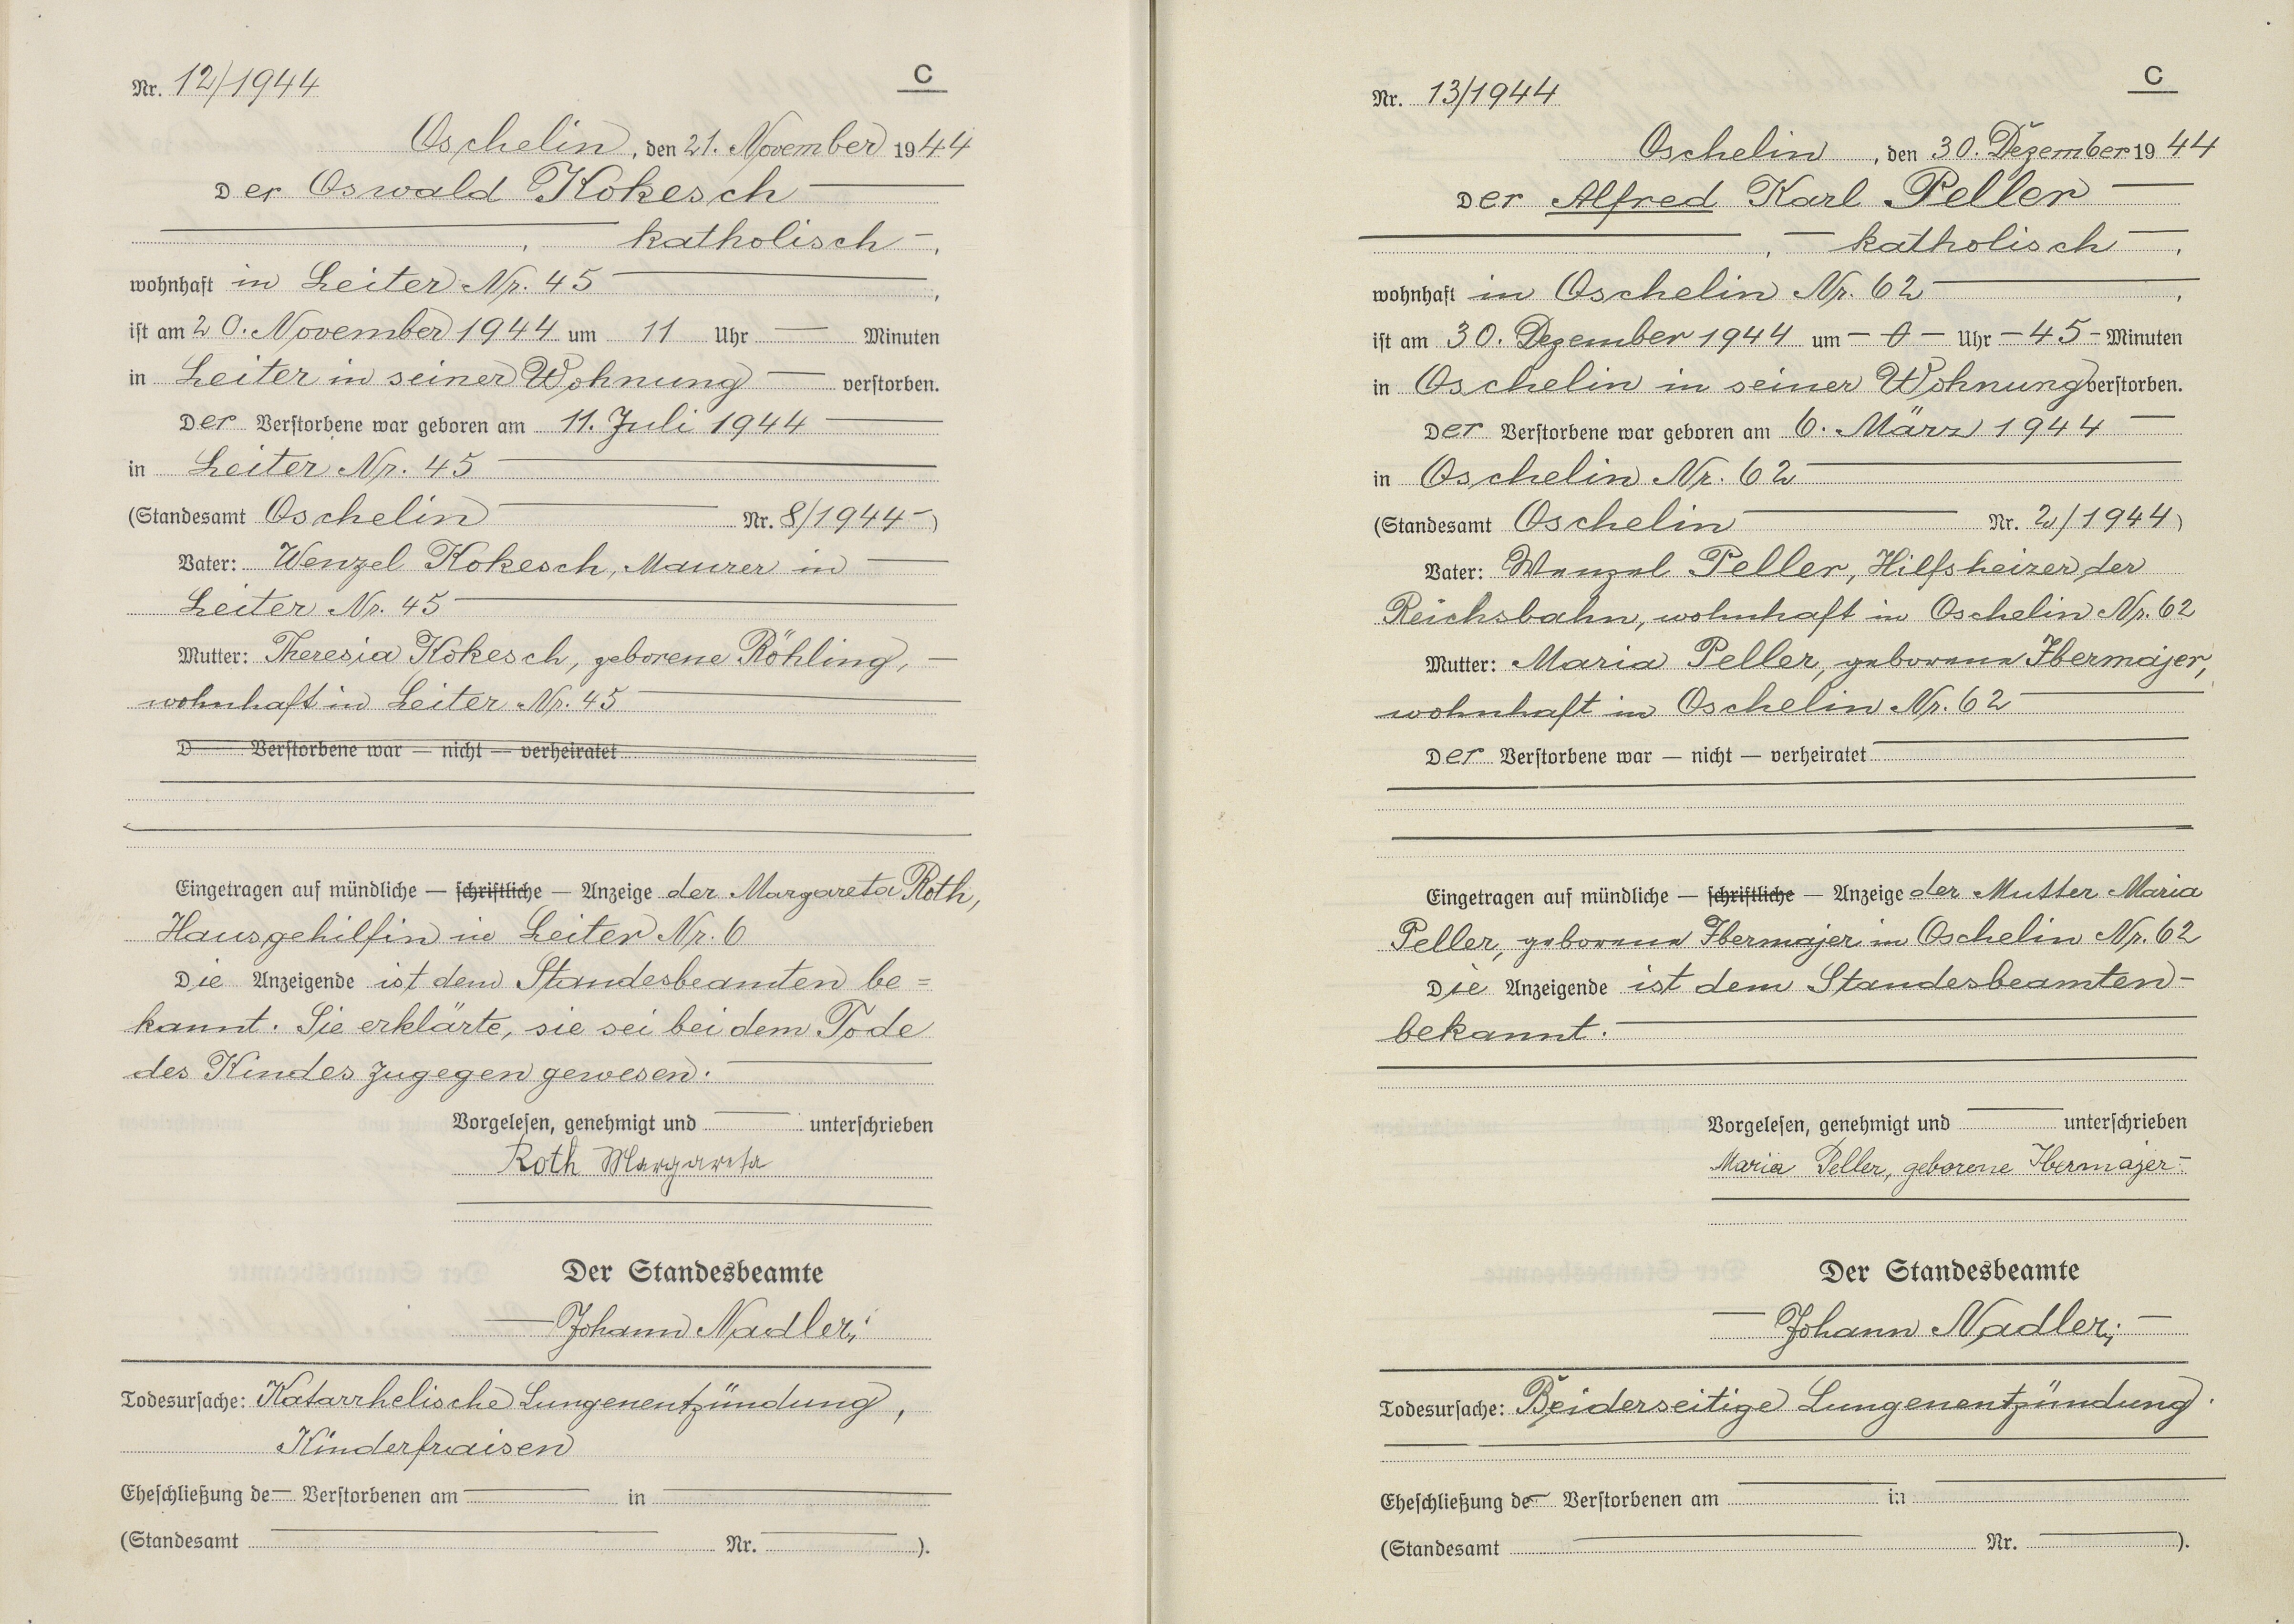 Nr. 12/1944
C
Oschelin, den 21. November 1944
Der Oswald Kokesch
, katholisch,
wohnhaft in Leiter Nr. 45,
ist am 20. November 1944 um 11 Uhr — Minuten
in Leiter in seiner Wohnung — verstorben.
Der Verstorbene war geboren am 11. Juli 1944
in Leiter Nr. 45
(Standesamt Oschelin Nr. 8/1944)
Vater: Wenzel Kokesch, Maurer in
Leiter Nr. 45
Mutter: Theresia Kokesch, geborene Röhling,
wohnhaft in Leiter Nr. 45
D Verstorbene war — nicht — verheiratet
Eingetragen auf mündliche — schriftliche — Anzeige der Margareta Roth,
Hausgehilfin in Leiter Nr. 6
Die Anzeigende ist dem Standesbeamten be=
kannt. Sie erklärte, sie sei bei dem Tode
des Kindes zugegen gewesen.
Vorgelesen, genehmigt und — unterschrieben
Roth Margareta
Der Standesbeamte
Johann Nadler
Todesursache: Katarrhelische Lungenentzündung,
Kinderfraisen
Eheschließung de— Verstorbenen am — in —
(Standesamt — Nr. —).
Nr. 13/1944
C
Oschelin, den 30. Dezember 1944
Der Alfred Karl Peller
, — katholisch —,
wohnhaft in Oschelin Nr. 62,
ist am 30. Dezember 1944 um — 0 — Uhr — 45 — Minuten
in Oschelin in seiner Wohnung verstorben.
Der Verstorbene war geboren am 6. März 1944
in Oschelin Nr. 62
(Standesamt Oschelin Nr. 2/1944)
Vater: Wenzel Peller, Hilfsheizer der
Reichsbahn, wohnhaft in Oschelin Nr. 62
Mutter: Maria Peller, geborene Ibermajer,
wohnhaft in Oschelin Nr. 62
Der Verstorbene war — nicht — verheiratet
Eingetragen auf mündliche — schriftliche — Anzeige der Mutter Maria
Peller, geborene Ibermajer in Oschelin Nr. 62
Die Anzeigende ist dem Standesbeamten
bekannt.
Vorgelesen, genehmigt und — unterschrieben
Maria Peller, geborene Ibermajer
Der Standesbeamte
Johann Nadler
Todesursache: Beiderseitige Lungenentzündung.
Eheschließung de— Verstorbenen am — in —
(Standesamt — Nr. —).